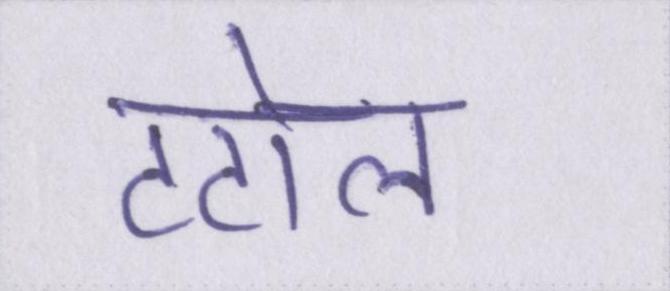 टटोल